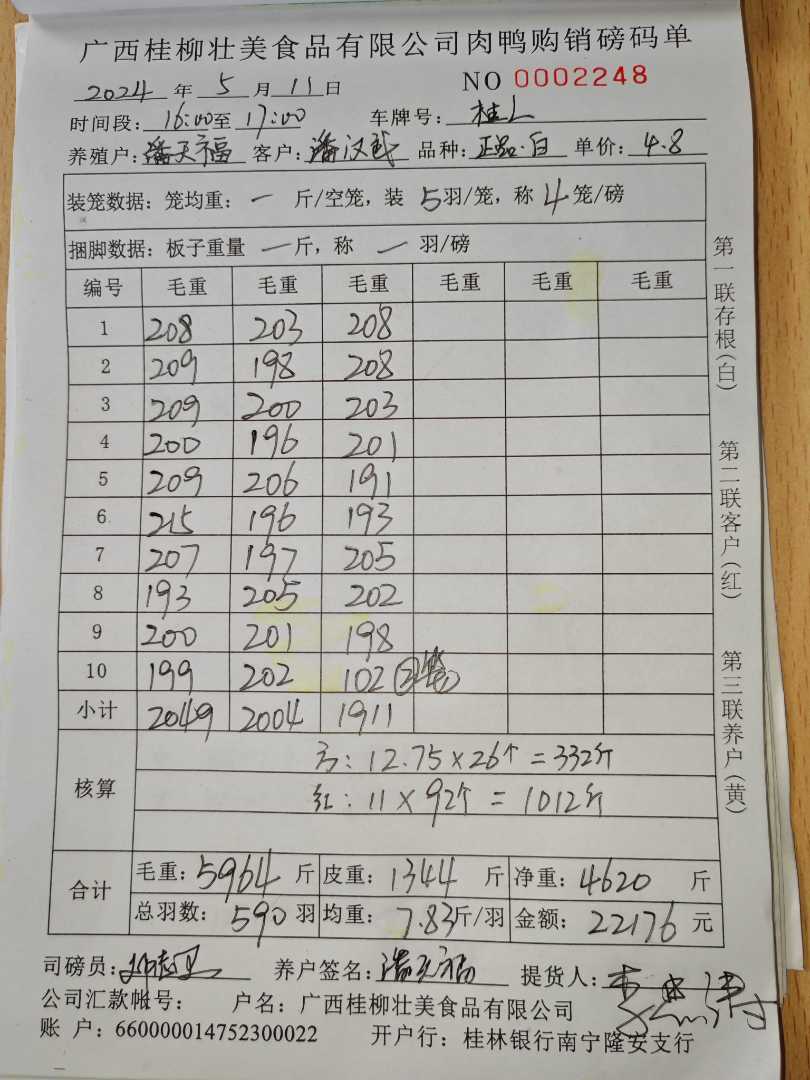 广西桂柳壮美食品有限公司肉鸭购销磅码单
2024 年 5 月 11 日 NO 0002248
时间段: 16:00 至 17:00 车牌号: 桂L
养殖户: 潘天福 客户: 潘汉武 品种: 正品·白 单价: 4.8
装笼数据: 笼均重: 一 斤/空笼, 装 5 羽/笼, 称 4 笼/磅
捆脚数据: 板子重量 一 斤, 称 一 羽/磅
编号 毛重 毛重 毛重 毛重 毛重 毛重
1 208 203 208
2 209 198 208
3 209 200 203
4 200 196 201
5 209 206 191
6 215 196 193
7 207 197 205
8 193 205 202
9 200 201 198
10 199 202 102 (2笼)
小计 2049 2004 1911
核算
: 12.75×26个=332斤
红: 11×92个=1012斤
合计
毛重: 5964 斤 皮重: 1344 斤 净重: 4620 斤
总羽数: 590 羽 均重: 7.83 斤/羽 金额: 22176 元
司磅员: 养户签名: 潘天福 提货人: 李
公司汇款帐号: 户名: 广西桂柳壮美食品有限公司
账 户: 660000014752300022 开户行: 桂林银行南宁隆安支行
第一联存根(白)
第二联客户(红)
第三联养户(黄)